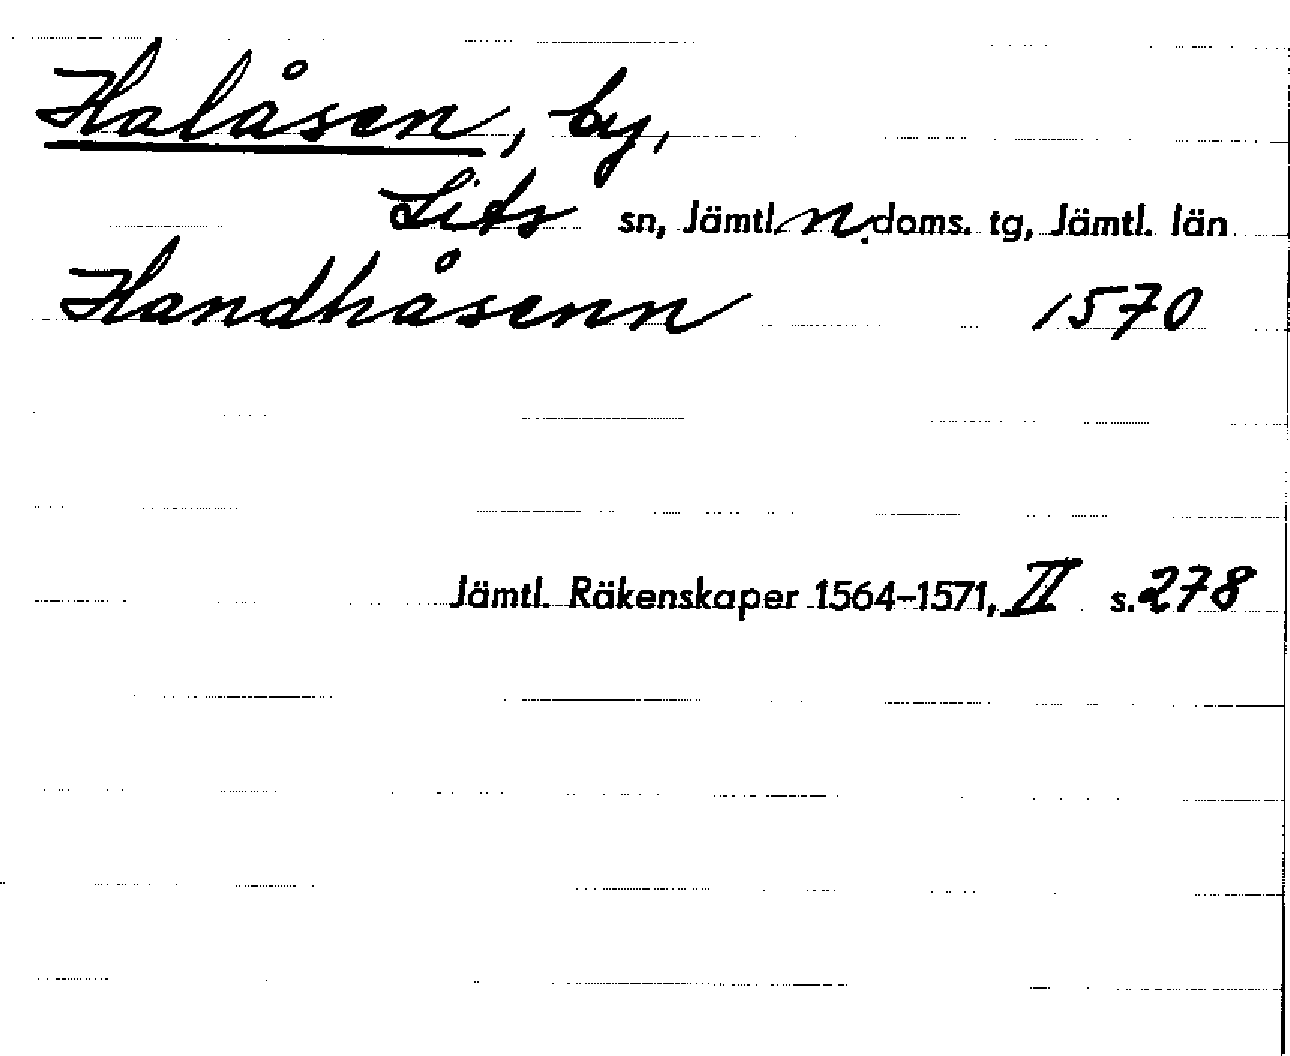 Halåsen, by,
Lits sn, Jämtl. n. doms. tg, Jämtl. län
Handhåsenn 1570
Jämtl. Räkenskaper 1564–1571, II s. 278